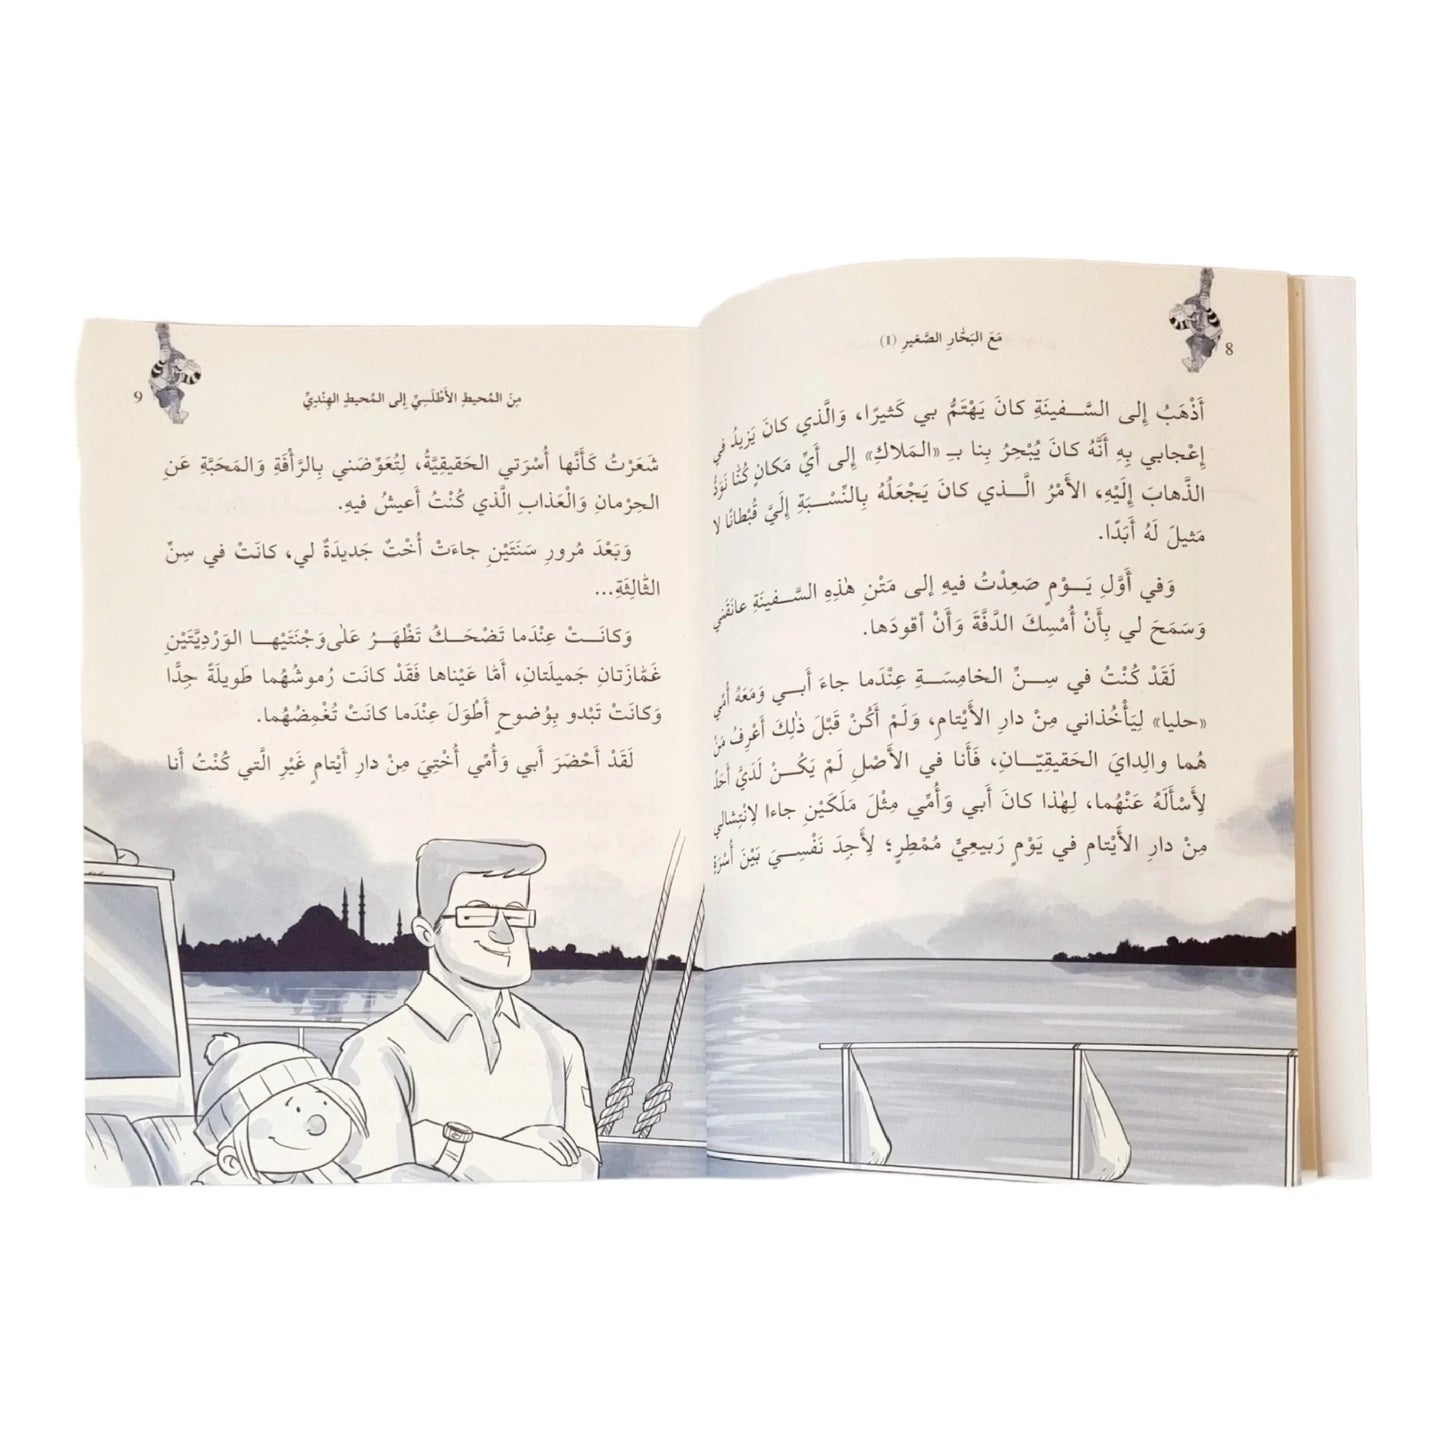 8
مَعَ البَحَّارِ الصَّغيرِ (1)
أَذْهَبُ إِلى السَّفينَةِ كانَ يَهْتَمُّ بي كَثيرًا، وَالَّذي كانَ يَزيدُ في
إِعْجابي بِهِ أَنَّهُ كانَ يُبْحِرُ بِنا بـِ «المَلاكِ» إِلى أَيِّ مَكانٍ كُنَّا نَوَدُّ
الذَّهابَ إِلَيْهِ، الأَمْرُ الَّذي كانَ يَجْعَلُهُ بِالنِّسْبَةِ إِلَيَّ قُبْطانًا لا
مَثيلَ لَهُ أَبَدًا.
وَفي أَوَّلِ يَوْمٍ صَعِدْتُ فيهِ إلى مَتْنِ هٰذِهِ السَّفينَةِ عانَقَني
وَسَمَحَ لي بِأَنْ أُمْسِكَ الدَّفَّةَ وَأَنْ أقودَها.
لَقَدْ كُنْتُ في سِنِّ الخامِسَةِ عِنْدَما جاءَ أَبي وَمَعَهُ أُمِّي
«حليا» لِيَأْخُذاني مِنْ دارِ الأَيْتامِ، وَلَمْ أَكُنْ قَبْلَ ذٰلِكَ أَعْرِفُ مَنْ
هُما والِدايَ الحَقيقِيّانِ، فَأَنا في الأَصْلِ لَمْ يَكُنْ لَدَيَّ أَحَدٌ
لِأَسْأَلَهُ عَنْهُما، لِهٰذا كانَ أَبي وَأُمِّي مِثْلَ مَلَكَيْنِ جاءا لِانْتِشالي
مِنْ دارِ الأَيْتامِ في يَوْمٍ رَبيعِيٍّ مُمْطِرٍ؛ لِأَجِدَ نَفْسِيَ بَيْنَ أُسْرَةٍ
9
مِنَ المُحيطِ الأَطْلَسِيِّ إِلى المُحيطِ الهِنْدِيِّ
شَعَرْتُ كَأَنَّها أُسْرَتي الحَقيقِيَّةُ، لِتُعَوِّضَني بِالرَّأْفَةِ وَالمَحَبَّةِ عَنِ
الحِرْمانِ وَالْعَذابِ الَّذي كُنْتُ أَعيشُ فيهِ.
وَبَعْدَ مُرورِ سَنَتَيْنِ جاءَتْ أُخْتٌ جَديدَةٌ لي، كانَتْ في سِنِّ
الثَّالِثَةِ...
وَكانَتْ عِنْدَما تَضْحَكُ تَظْهَرُ عَلٰى وَجْنَتَيْها الوَرْدِيَّتَيْنِ
غَمَّازَتانِ جَميلَتانِ، أَمَّا عَيْناها فَقَدْ كانَت رُموشُهُما طَويلَةً جِدًّا
وَكانَتْ تَبْدو بِوُضوحٍ أَطْوَلَ عِنْدَما كانَتْ تُغْمِضُهُما.
لَقَدْ أَحْضَرَ أَبي وَأُمِّي أُخْتِيَ مِنْ دارِ أَيْتامٍ غَيْرِ الَّتي كُنْتُ أَنا